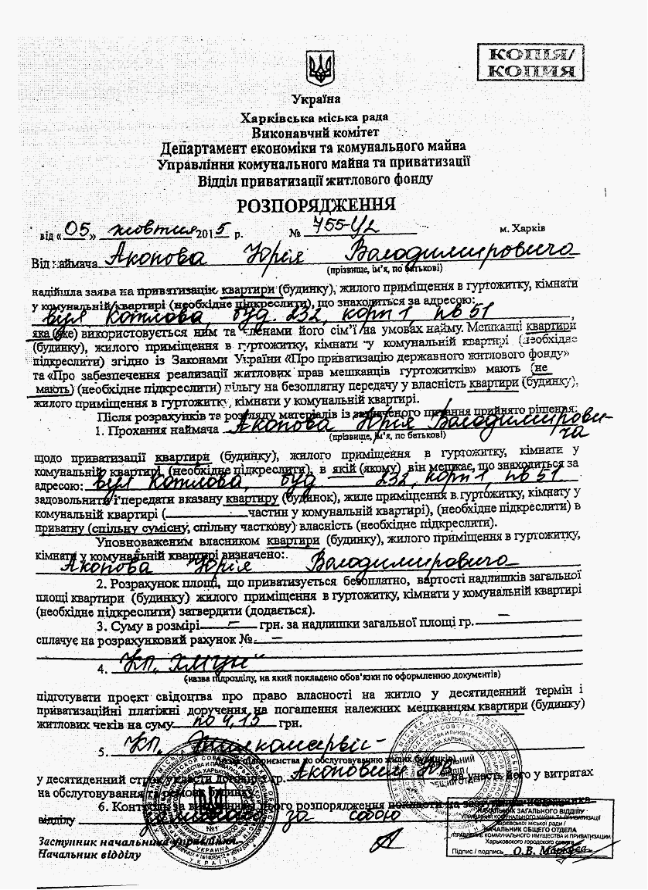 КОПІЯ/
КОПИЯ
Україна
Харківська міська рада
Виконавчий комітет
Департамент економіки та комунального майна
Управління комунального майна та приватизації
Відділ приватизації житлового фонду
РОЗПОРЯДЖЕННЯ
від « 05 » жовтня 2015 р. № 755-У2 м. Харків
Від наймача Акопова Юрія Володимировича
(прізвище, ім'я, по батькові)
надійшла заява на приватизацію квартири (будинку), жилого приміщення в гуртожитку, кімнати
у комунальній квартирі (необхідне підкреслити), що знаходиться за адресою:
вул Котлова, буд. 232, корп 1, кв 51
яка (яке) використовується ним та членами його сім'ї на умовах найму. Мешканці квартири
(будинку), жилого приміщення в гуртожитку, кімнати у комунальній квартирі (необхідне
підкреслити) згідно із Законами України «Про приватизацію державного житлового фонду»
та «Про забезпечення реалізації житлових прав мешканців гуртожитків» мають (не
мають) (необхідне підкреслити) пільгу на безоплатну передачу у власність квартири (будинку),
жилого приміщення в гуртожитку, кімнати у комунальній квартирі.
Після розрахунків та розгляду матеріалів із зазначеного питання прийнято рішення:
1. Прохання наймача Акопова Юрія Володимировича
(прізвище, ім'я, по батькові)
щодо приватизації квартири (будинку), жилого приміщення в гуртожитку, кімнати у
комунальній квартирі, (необхідне підкреслити), в якій (якому) він мешкає, що знаходиться за
адресою: вул Котлова, буд 232, корп 1, кв 51
задовольнити і передати вказану квартиру (будинок), жиле приміщення в гуртожитку, кімнату у
комунальній квартирі ( частин у комунальній квартирі), (необхідне підкреслити) в
приватну (спільну сумісну, спільну часткову) власність (необхідне підкреслити).
Уповноваженим власником квартири (будинку), жилого приміщення в гуртожитку,
кімнати у комунальній квартирі визначено:
Акопова Юрія Володимировича
2. Розрахунок площі, що приватизується безоплатно, вартості надлишків загальної
площі квартири (будинку) жилого приміщення в гуртожитку, кімнати у комунальній квартирі
(необхідне підкреслити) затвердити (додається).
3. Суму в розмірі – грн. за надлишки загальної площі гр. –
сплачує на розрахунковий рахунок № –
4. КП
(назва підрозділу, на який покладено обов'язки по оформленню документів)
підготувати проект свідоцтва про право власності на житло у десятиденний термін і
приватизаційні платіжні доручення на погашення належних мешканцям квартири (будинку)
житлових чеків на суму по 4,15 грн.
5. КП Жилкомсервіс
підприємства по обслуговуванню жилих будинків)
у десятиденний строк укласти договір з гр. Акоповим на участь його у витратах
на обслуговування та ремонт будинку.
6. Контроль за виконанням цього розпорядження покласти на
відділу залишаю за собою
Заступник начальника управління
Начальник відділу
НАЧАЛЬНИК ЗАГАЛЬНОГО ВІДДІЛУ
Харківської міської ради /
НАЧАЛЬНИК ОБЩЕГО ОТДЕЛА
Харьковского городского совета
Підпис / подпись О.В.